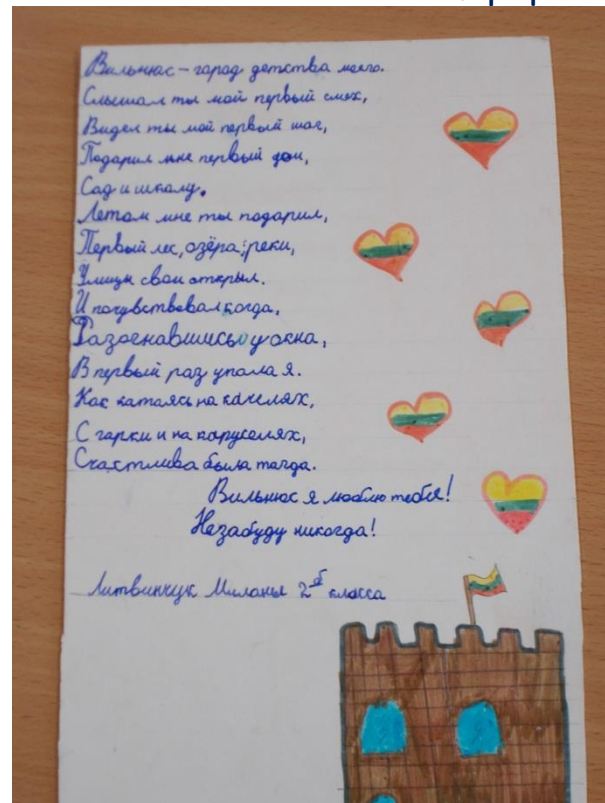 Вильнюс – город детства моего.
Слышал ты мой первый смех,
Видел ты мой первый шаг,
Подарил мне первый дом,
Сад и школу.
Летом мне ты подарил,
Первый лес, озёра, реки,
Улицы свои открыл.
И почувствовал когда,
Разогнавшись у окна,
В первый раз упала я.
Как катаясь на качелях,
С гарки и на каруселях,
Счастлива была тогда.
Вильнюс я люблю тебя!
Незабуду никогда!
Литвинчук Миланья 2 класса